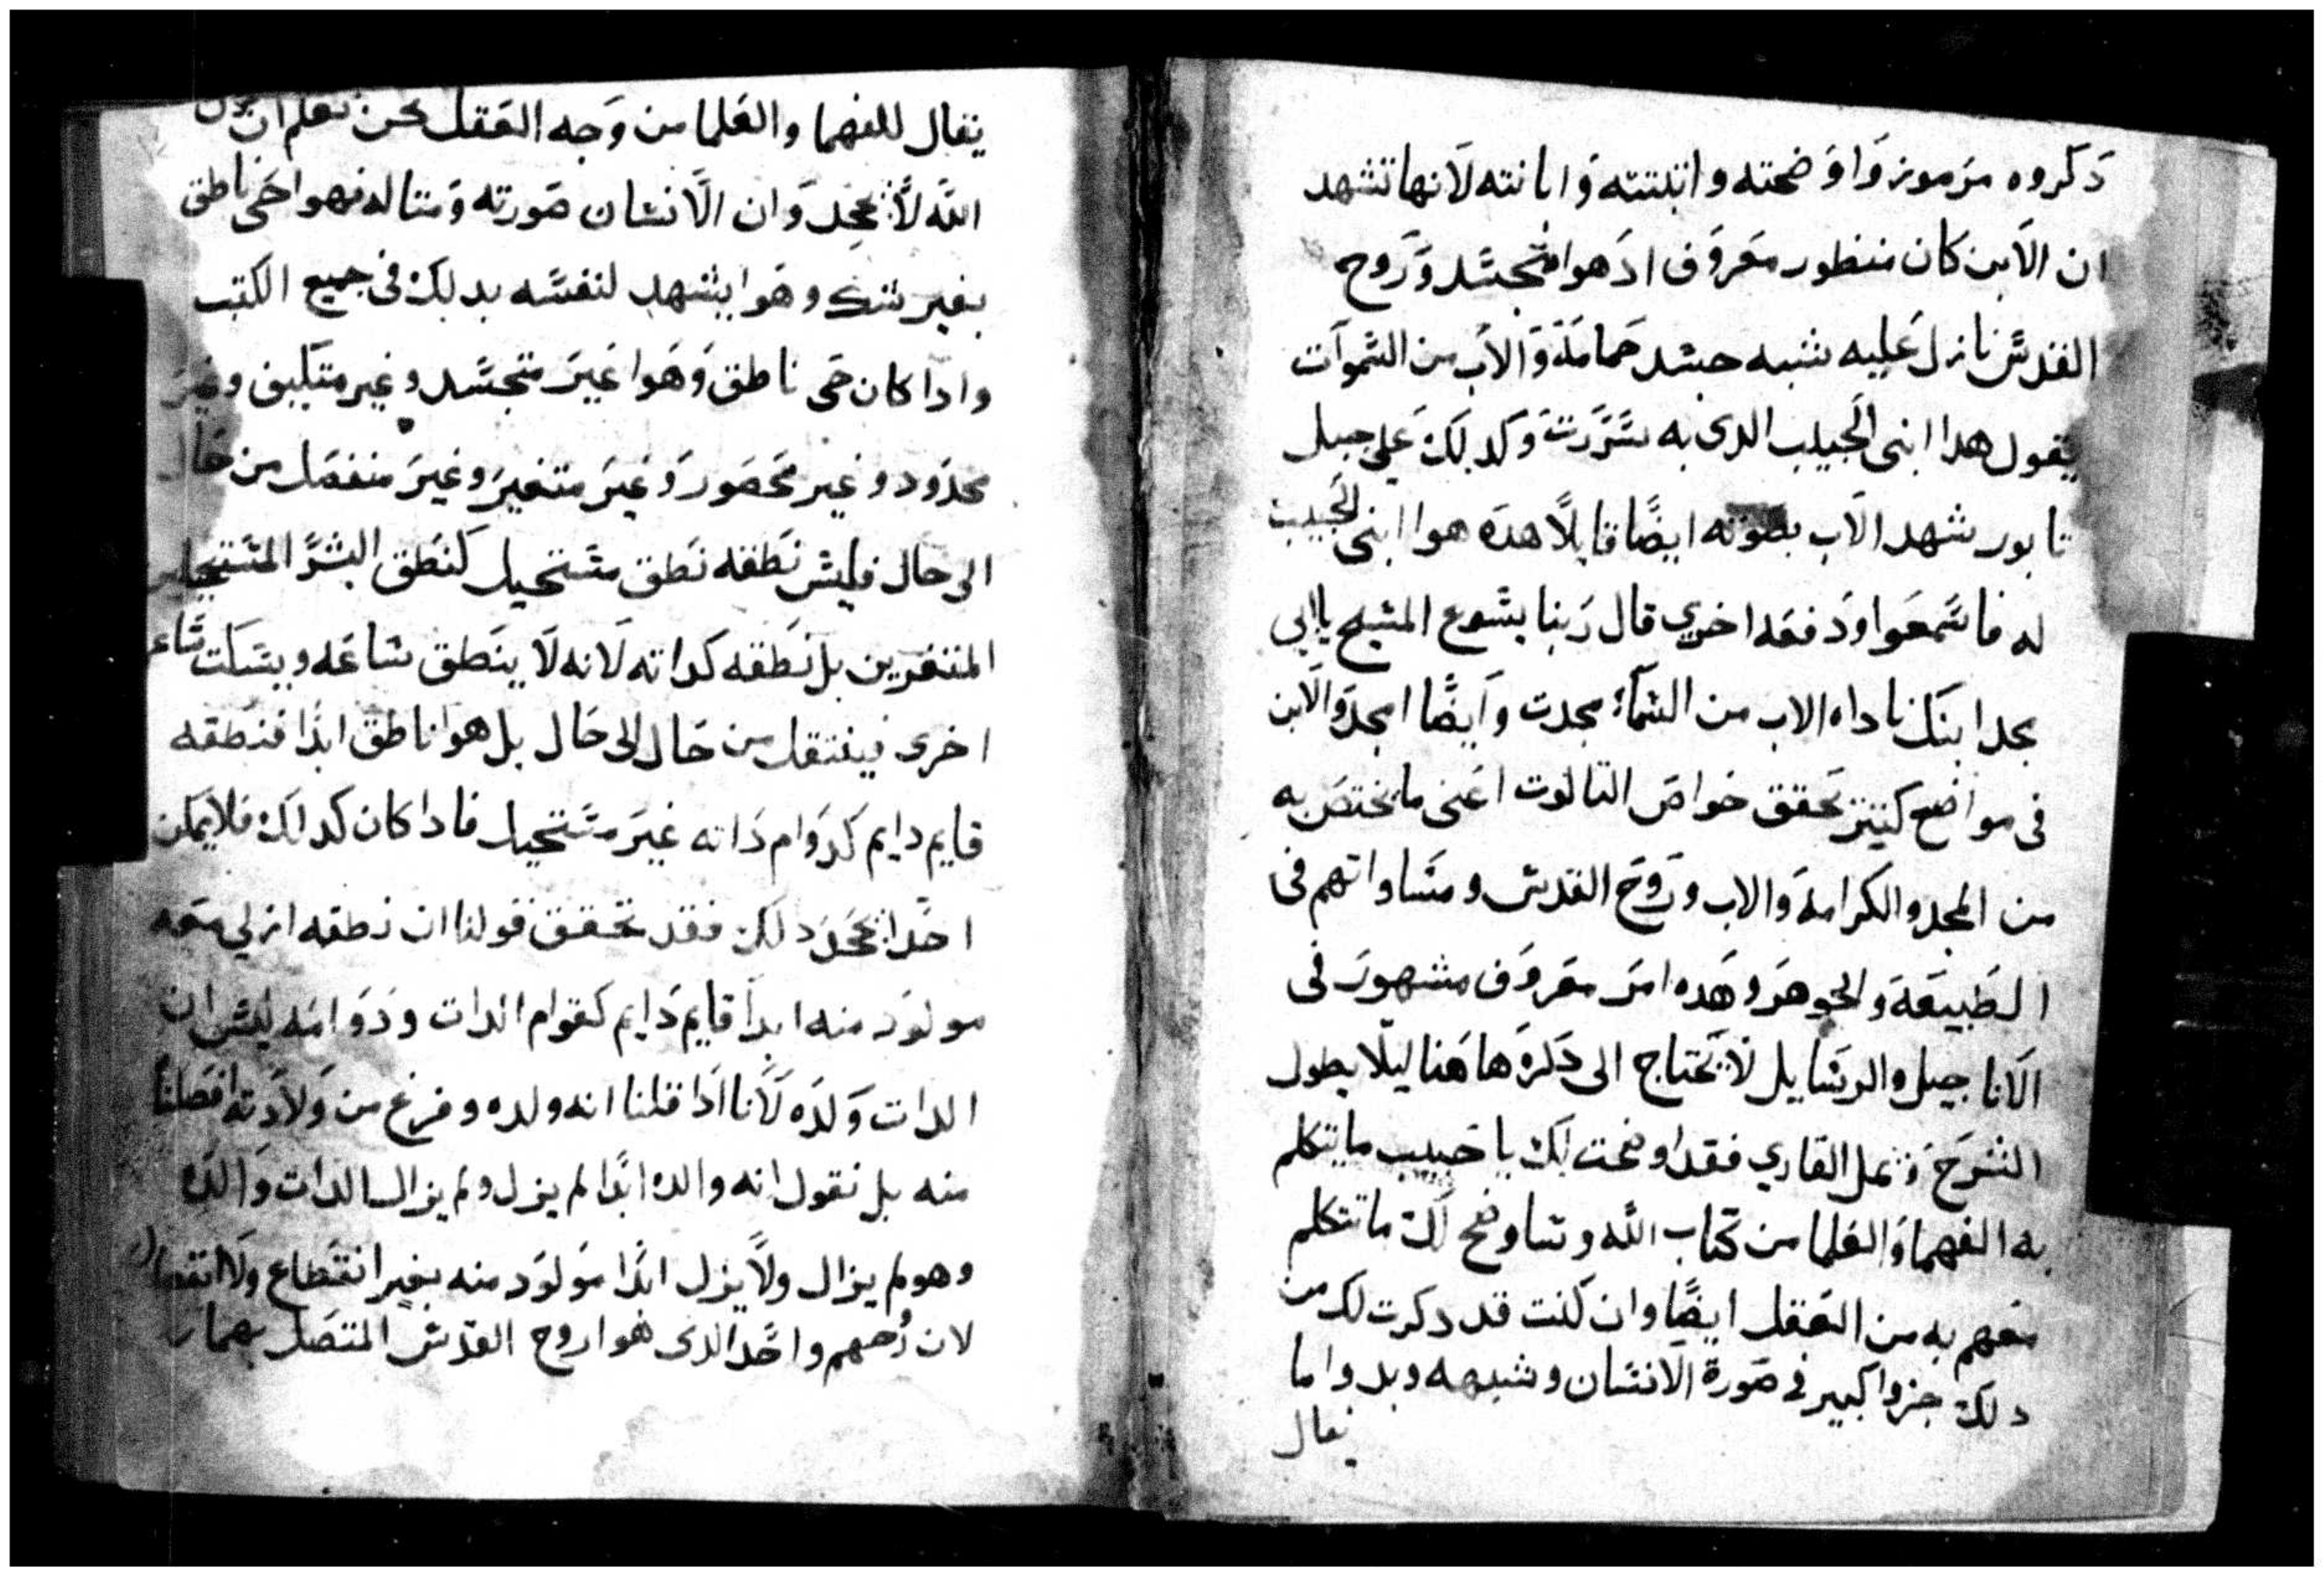 دكروه مرموز واوضحته واتبتته وابانته لانها تشهد
ان الابن كان منظور معروف اد هوا متجسد وروح
القدس نازل عليه شبه جسد حمامة والاب من السموات
يقول هدا ابنى الحبيب الدى به سررت وكدلك على جبل
تابور شهد الاب بصوته ايضًا قايلًا هده هوا ابنى الحبيب
له فاسمعوا ودفعه اخرى قال ربنا يسوع المسيح يا ابى
مجد ابنك ناداه الاب من السماء مجدت وايضًا امجد والابن
فى مواضع كتير تحقق خواص التالوت اعنى ما يختص به
من المجد والكرامة والاب وروح القدس ومساواتهم فى
الطبيعة والجوهر وهده امر معروف مشهور فى
الاناجيل والرسايل لا نحتاج الى دكره هاهنا ليلا يطول
الشرح ويمل القارى فقد اوضحت لك يا حبيب ما يتكلم
به الفهما والعلما من كتاب الله وساوضح لك ما تتكلم
منهم به من العقل ايضًا وان كنت قد دكرت لك من
دلك جزوا كبير فى صورة الانسان وشبهه وبدوا ما
يقال
يقال للفهما والعلما من وجه العقل نحن نعلم ان
الله لا يجحد وان الانسان صورته ومتاله فهوا حى ناطق
بغير شك وهوا يشهد لنفسه بدلك فى جميع الكتب
وادا كان حى ناطق وهوا غير متجسد وغير متكيف وغير
محدود وغير محصور وغير متغير وغير منفصل من حال
الى حال فليس نطقه نطق مستحيل كنطق البشر المستحيلين
المتغيرين بل نطقه كداته لانه لا ينطق ساعه ويسكت ساعه
اخرى فينتقل من حال الى حال بل هوا ناطق ابدًا فنطقه
قايم دايم كدوام داته غير مستحيل فادا كان كدلك فلا يمكن
احدًا يجحد دلك فقد تحقق قولنا ان نطقه ازلي معه
مولود منه ابدا قايم دايم كقوام الدات ودوامه ليس ان
الدات ولده لانا ادا قلنا انه ولده وفرغ من ولادته افصلنا
منه بل نقول انه والده ابدًا لم يزل ولم يزال الدات والده
وهو لم يزال ولا يزل ابدًا مولود منه بغير انقطاع ولا انفصال
لان رُحهم واحد الدى هوا روح القدس المتصل بهما